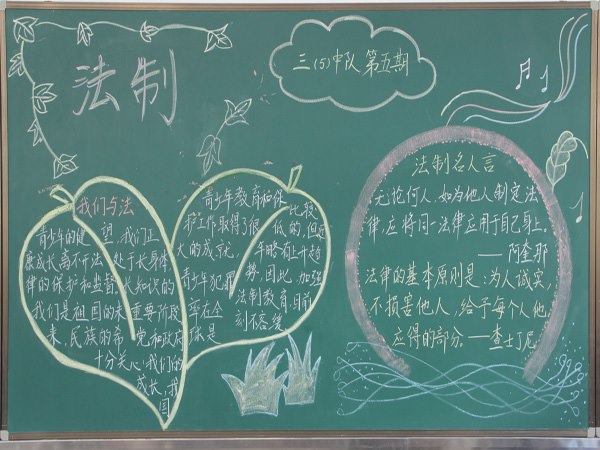 法制
三(5)中队第五期
我们与法
青少年的健
康成长离不开法
律的保护和监督.
我们是祖国的未
来,民族的希
望,我们正
处于长身体
长知识的
重要阶段
党和政府
十分关心我们的
成长,我
国
青少年教育和保
护工作取得了很
大的成就,
青少年犯罪
率在全
球是
比较
低的,但近
年略有上升趋
势,因此,加强
法制教育,目前
刻不容缓.
法制名人言
无论何人,如为他人制定法
律,应将同一法律应用于自己身上。
——阿奎那
法律的基本原则是:为人诚实,
不损害他人,给于每个人他
应得的部分.——查士丁尼